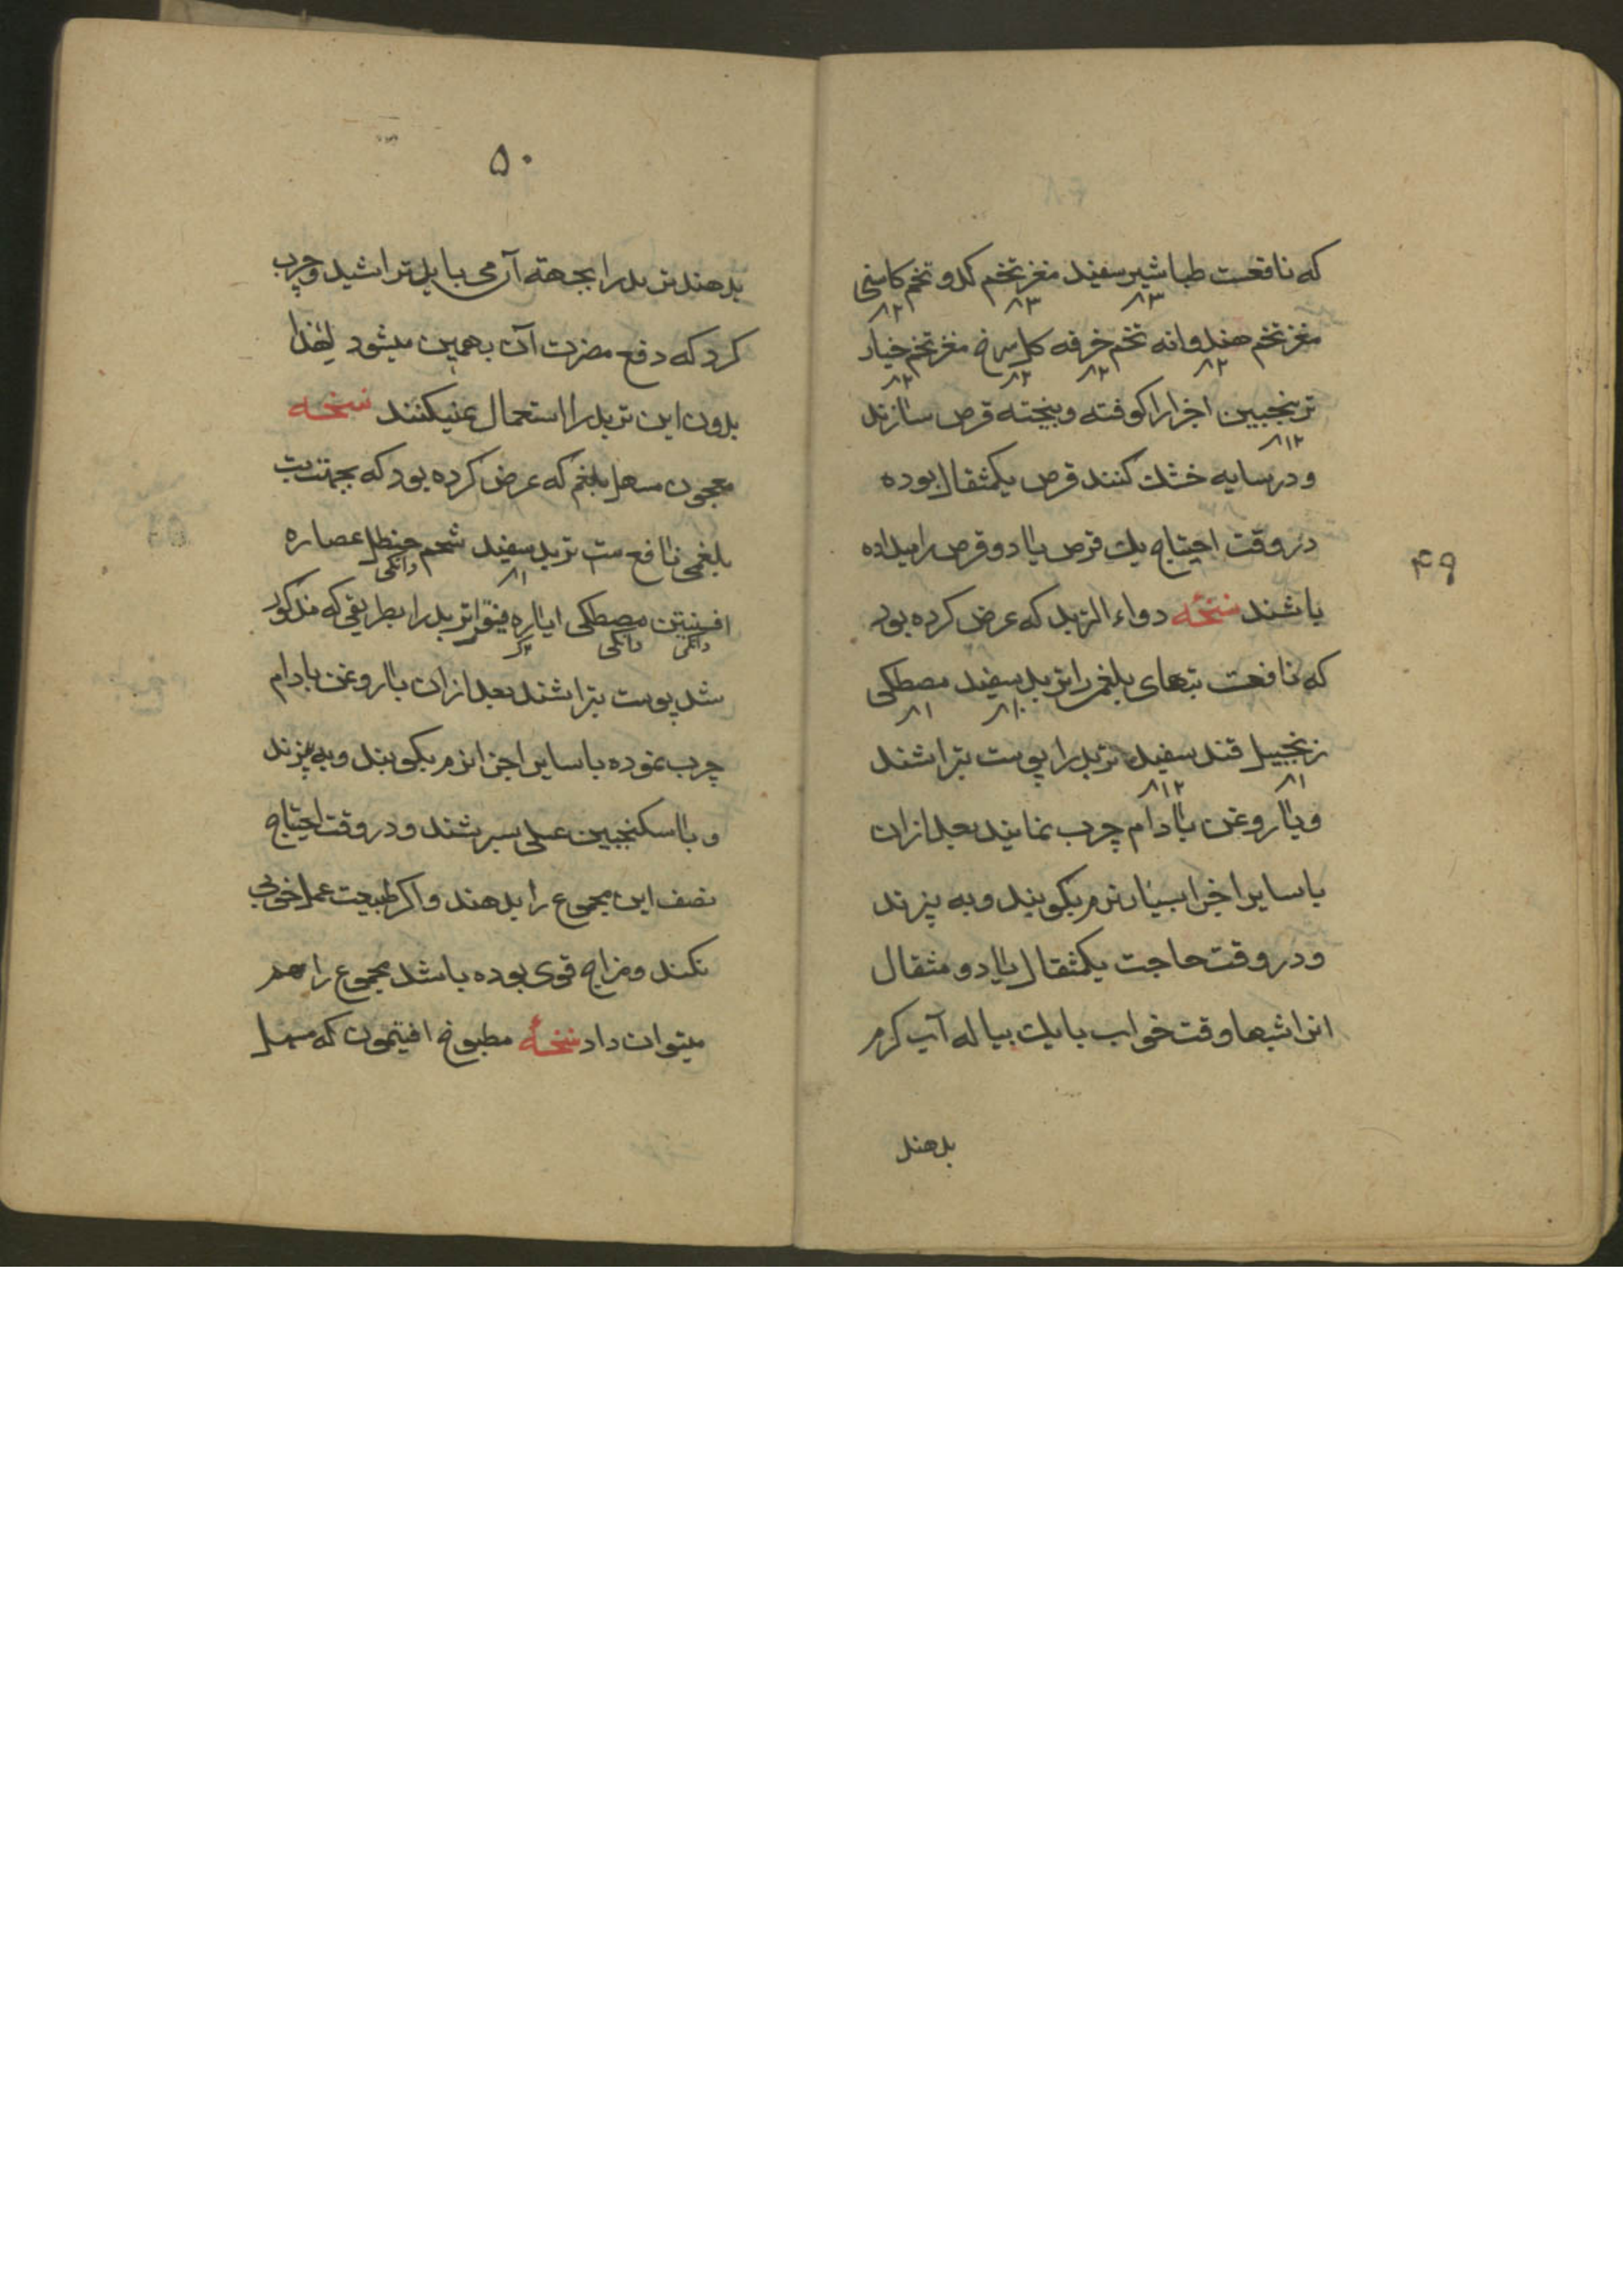 که نافعست طباشیر سفید مغز تخم کدو تخم کاسنی
۳ ۳ ۲
مغز تخم هندوانه تخم خرفه کل سرخ مغز تخم خیار
۲ ۲ ۲ ۲
ترنجبین اجزا را کوفته و بیخته قرص سازند
۱۲
و در سایه خشك کنند قرص یکمثقال بوده
در وقت احتیاج یك قرص یا دو قرص را میداده
باشند نسخه دواء التربد که عرض کرده بود
که نافعست تبهای بلغمی را تربد سفید مصطکی
۱۰ ۱
زنجبیل قند سفید تربد را پوست بتراشند
۱ ۱۲
و با روغن بادام چرب نمایند بعد ازان
با سایر اجزا بسیار نرم بکوبند و به پزند
و در وقت حاجت یکمثقال یا دو مثقال
ازا شبها وقت خواب با یك پیاله آب کرم
بدهند
۴۹
۵۰
بدهند تربد را بجهته آن می باید تراشید و چرب
کرد که دفع مضرت آن بهمین میشود لهذا
بدون این تربد را استعمال نمیکنند نسخه
معجون مسهل بلغم که عرض کرده بود که بجهت تب
بلغمی نافع ست تربد سفید شحم حنظل عصاره
۱ دانکی
افسنتین مصطکی ایاره فیقرا تربد را بطریقی که مذکور
دانکی دانکی
شد پوست بتراشند بعد ازان با روغن بادام
چرب نموده با سایر اجزا نرم بکوبند و به پزند
و با سکنجبین عسلی بسرشند و در وقت احتیاج
نصف این مجموع را بدهند و اکر طبیعت عمل خوبی
نکند و مزاج قوی بوده باشد مجموع را هم
میتوان داد نسخه مطبوخ افتیمون که مسهل